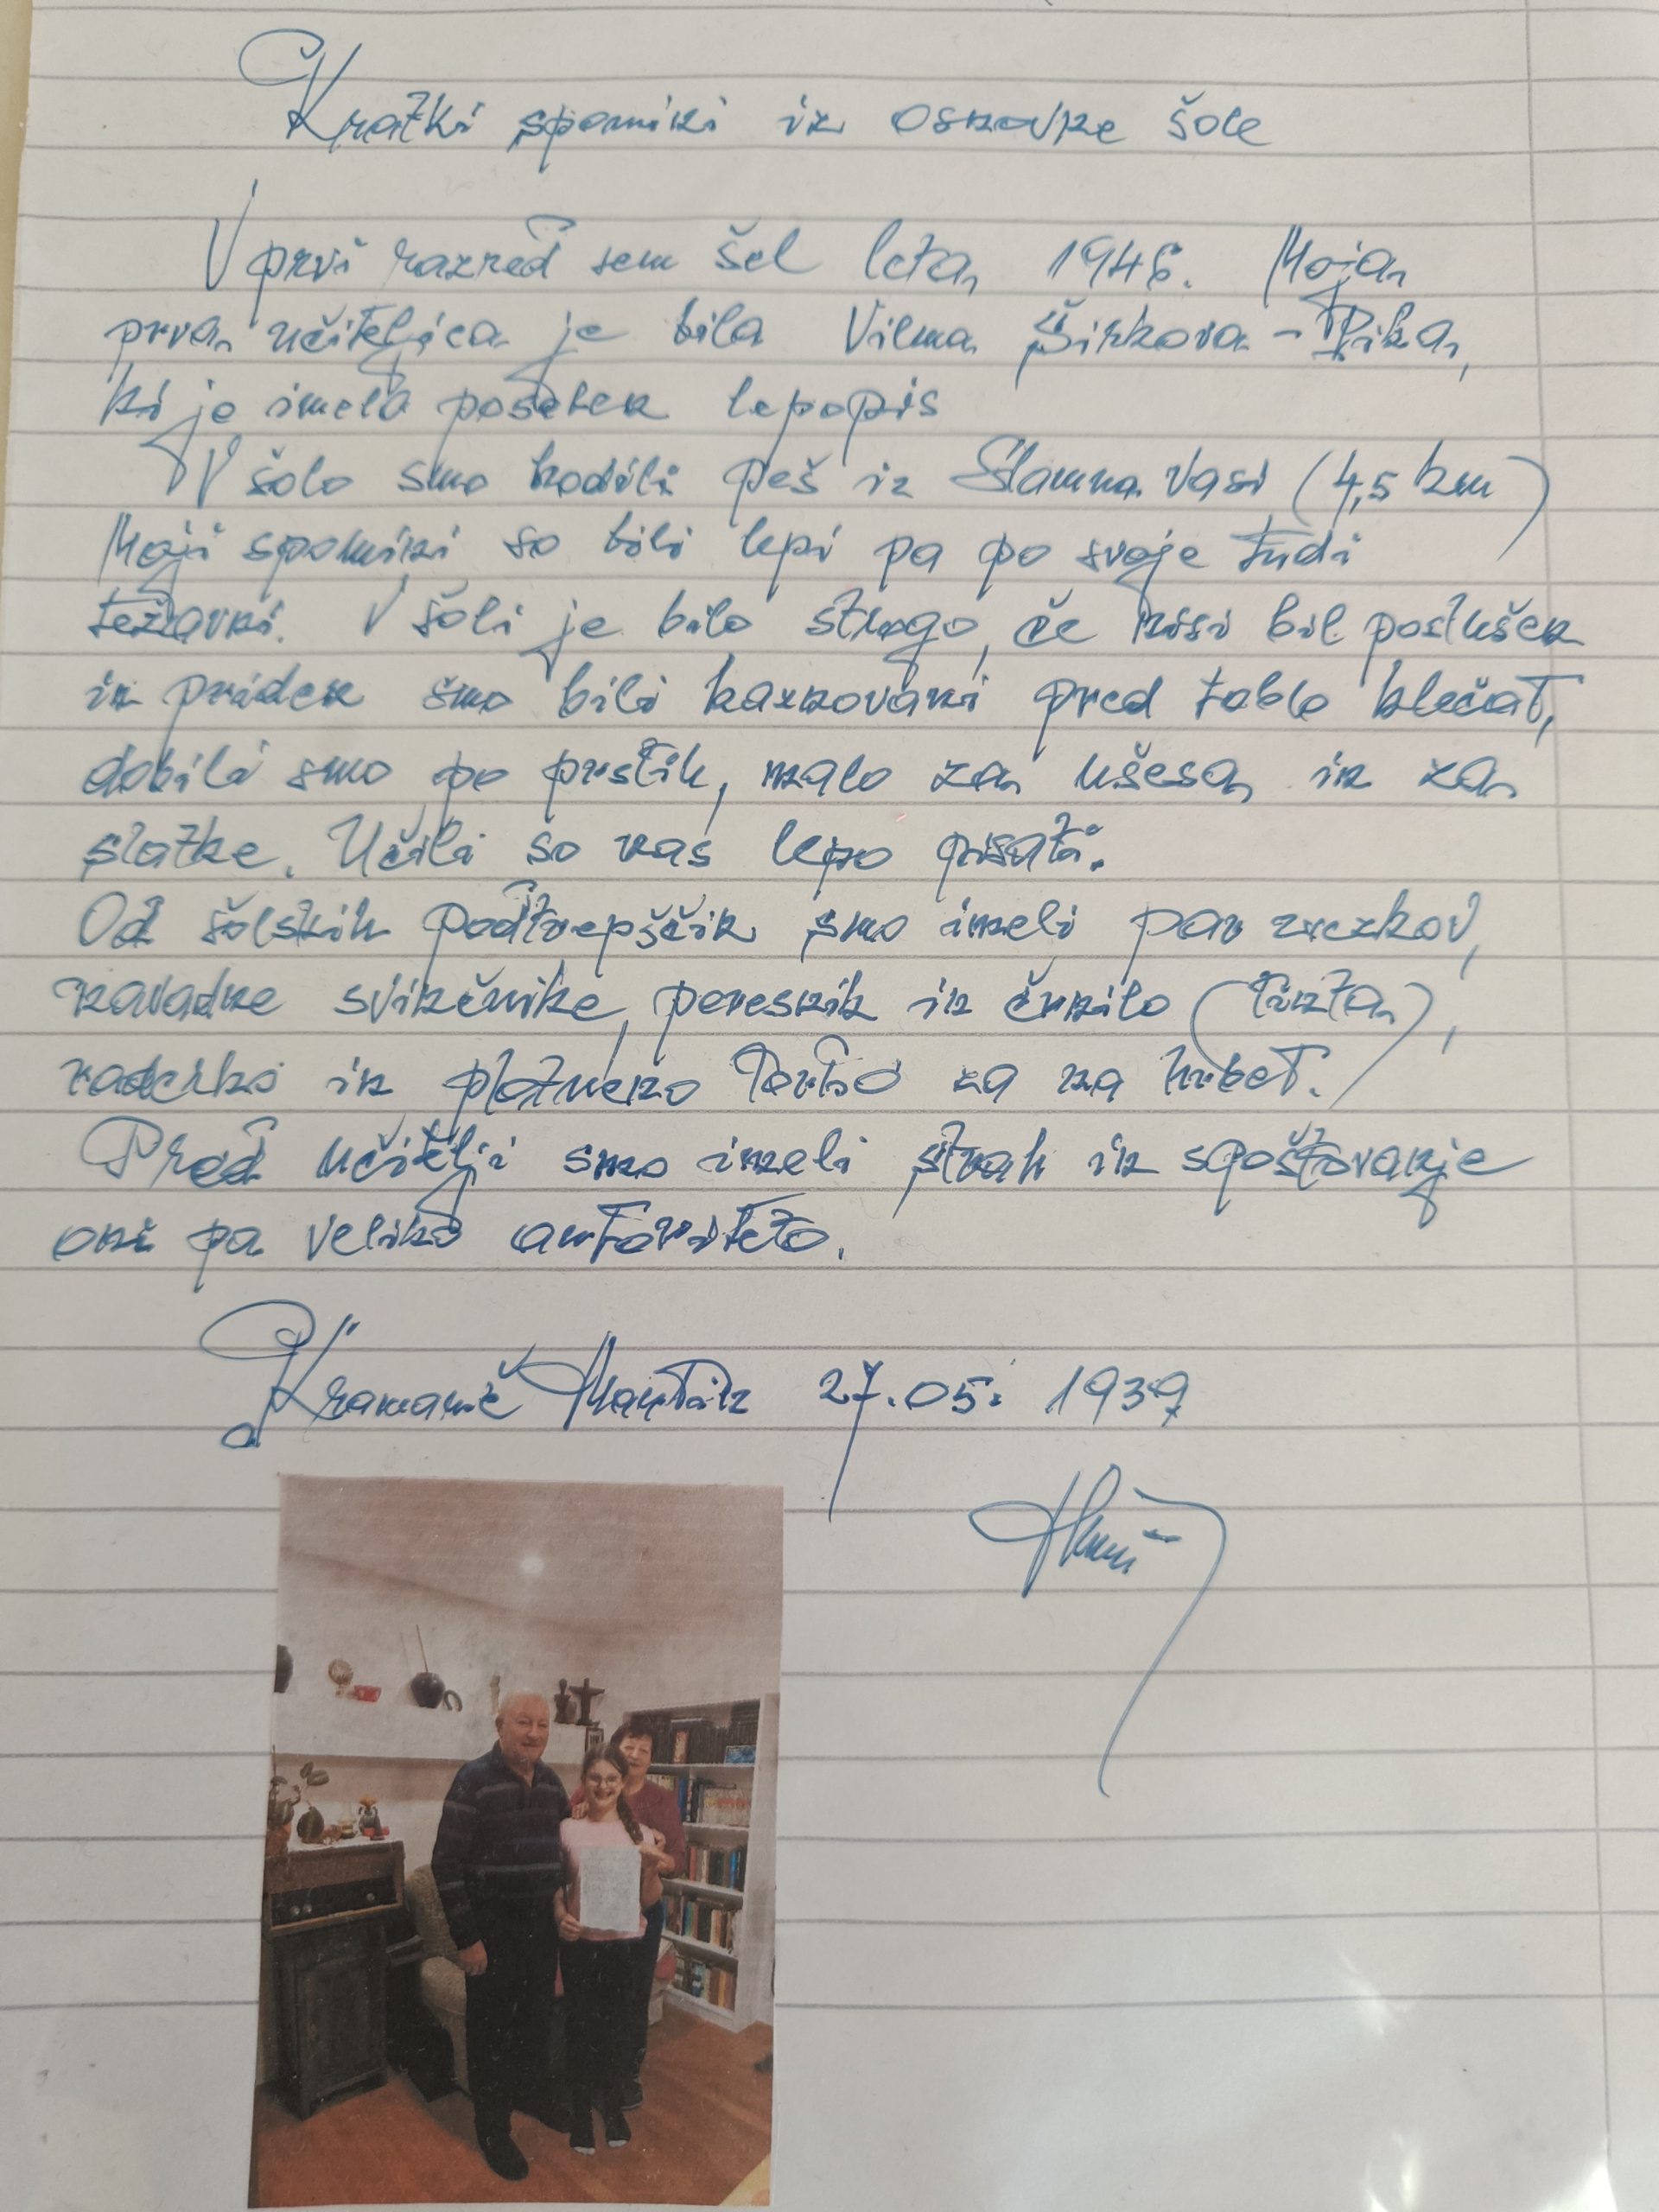 Kratki spomini iz osnovne šole
V prvi razred sem šel leta 1946. Moja
prva učiteljica je bila Vilma Širkova - Pika,
ki je imela poseben lepopis
V šolo smo hodili peš iz Slamna vasi (4,5 km)
Moji spomini so bili lepi pa po svoje tudi
težavni. V šoli je bilo strogo, če nisi bil poslušen
in priden smo bili kaznovani pred tablo klečat,
dobili smo po prstih, malo za ušesa in za
slatke. Učili so nas lepo pisati.
Od šolskih podtrepščin smo imeli par zvezkov,
navadne svinčnike, peresnik in črnilo (tinta),
raderko in platneno torbo za na hrbet.
Pred učitelji smo imeli strah in spoštovanje
oni pa veliko avtoriteto.
Kramarič Martin 27.05. 1939